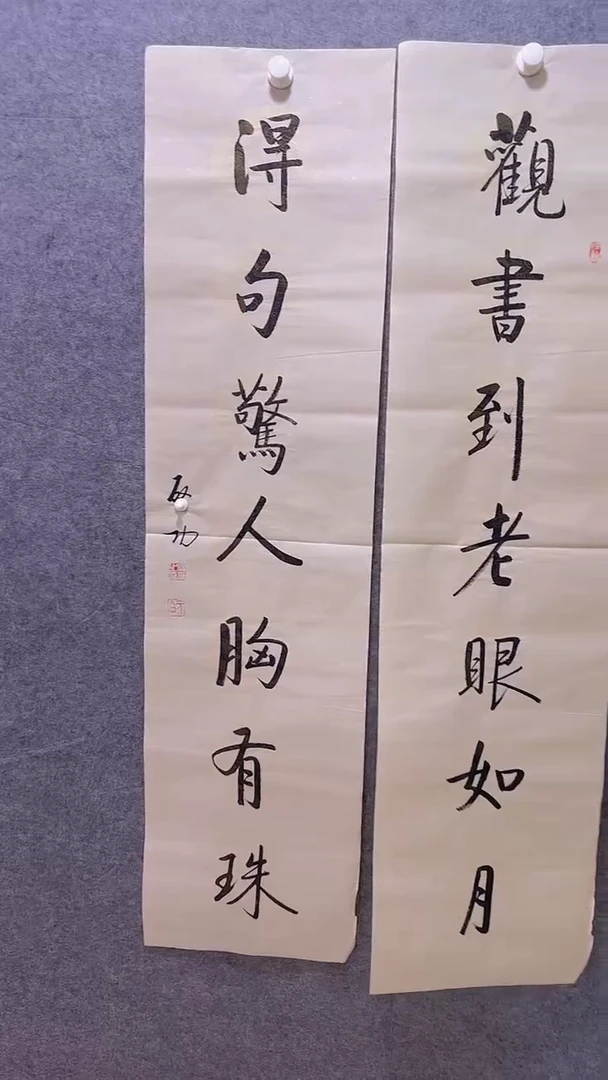 觀書到老眼如月
得句驚人胸有珠
啟功